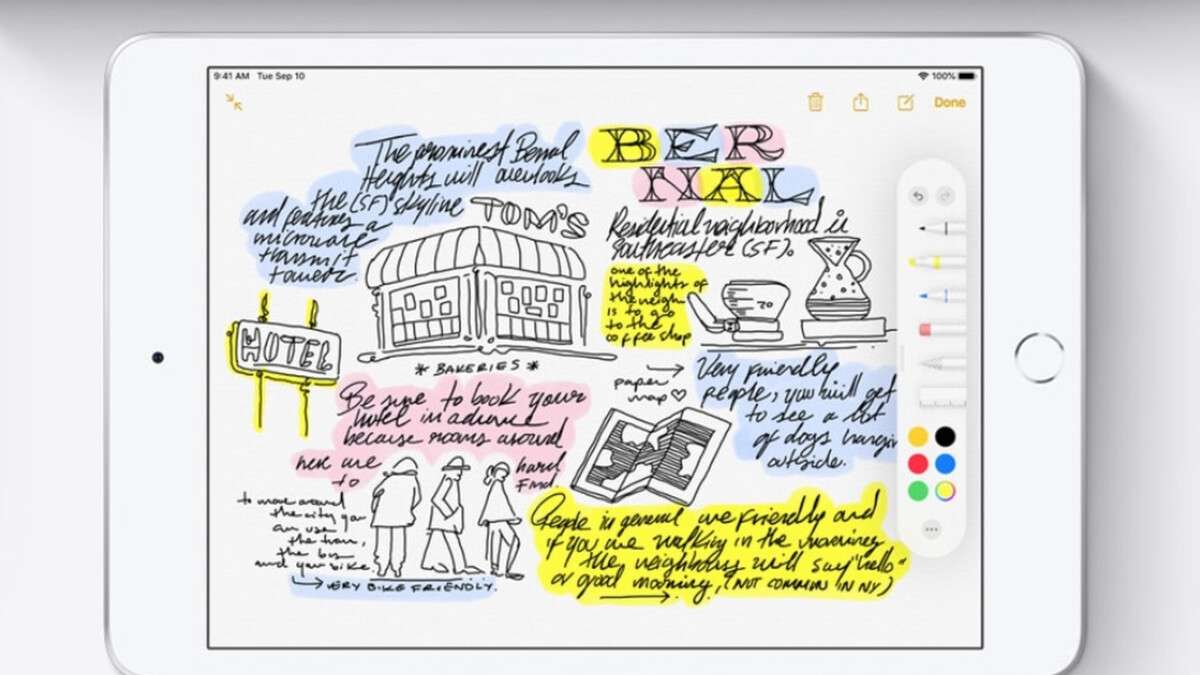 9:41 AM Tue Sep 10
100%
Done
The prominest Bernal
Heights will overlooks
the (SF) skyline
and features a
microwave
transmit
tower.
BER
NAL
TOM'S
Residential neighborhood is
southeaster (SF).
one of the
highlights of
the neigh
is to go
to the
coffee shop
20
HOTEL
* BAKERIES *
paper
map
Very friendly
people, you will get
to see a lot
of dogs hangin
outside.
Be sure to book your
hotel in advance
because rooms around
here are hard
to find.
to move around
the city you
can use
the train,
the bus
and your bike
VERY BIKE FRIENDLY.
People in general are friendly and
if you are walking in the morning
the neighbors will say "hello"
or good morning, (NOT COMMON IN NY)